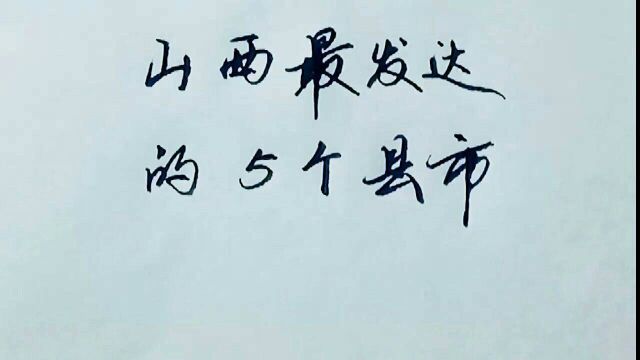 山西最发达
的5个县市